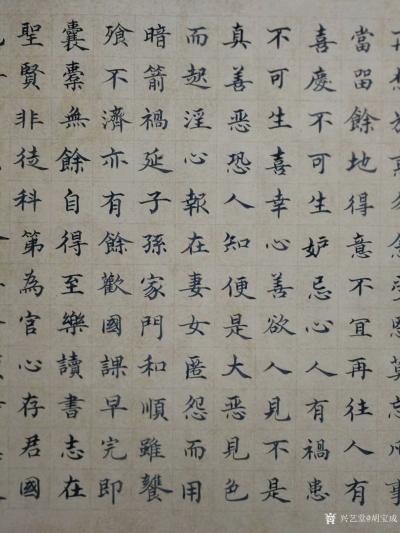 再想施惠勿念受恩莫忘凡事
當留餘地得意不宜再往人有
喜慶不可生妒忌心人有禍患
不可生喜幸心善欲人見不是
真善惡恐人知便是大惡見色
而起淫心報在妻女匿怨而用
暗箭禍延子孫家門和順雖饔
飱不濟亦有餘歡國課早完即
囊橐無餘自得至樂讀書志在
聖賢非徒科第為官心存君國
兴艺堂@胡宝成